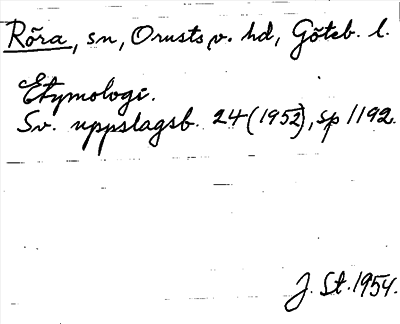 Röra, sn, Orusts v. hd, Göteb. l.
Etymologi.
Sv. uppslagsb. 24 (1952), sp 1192.
J. St. 1954.